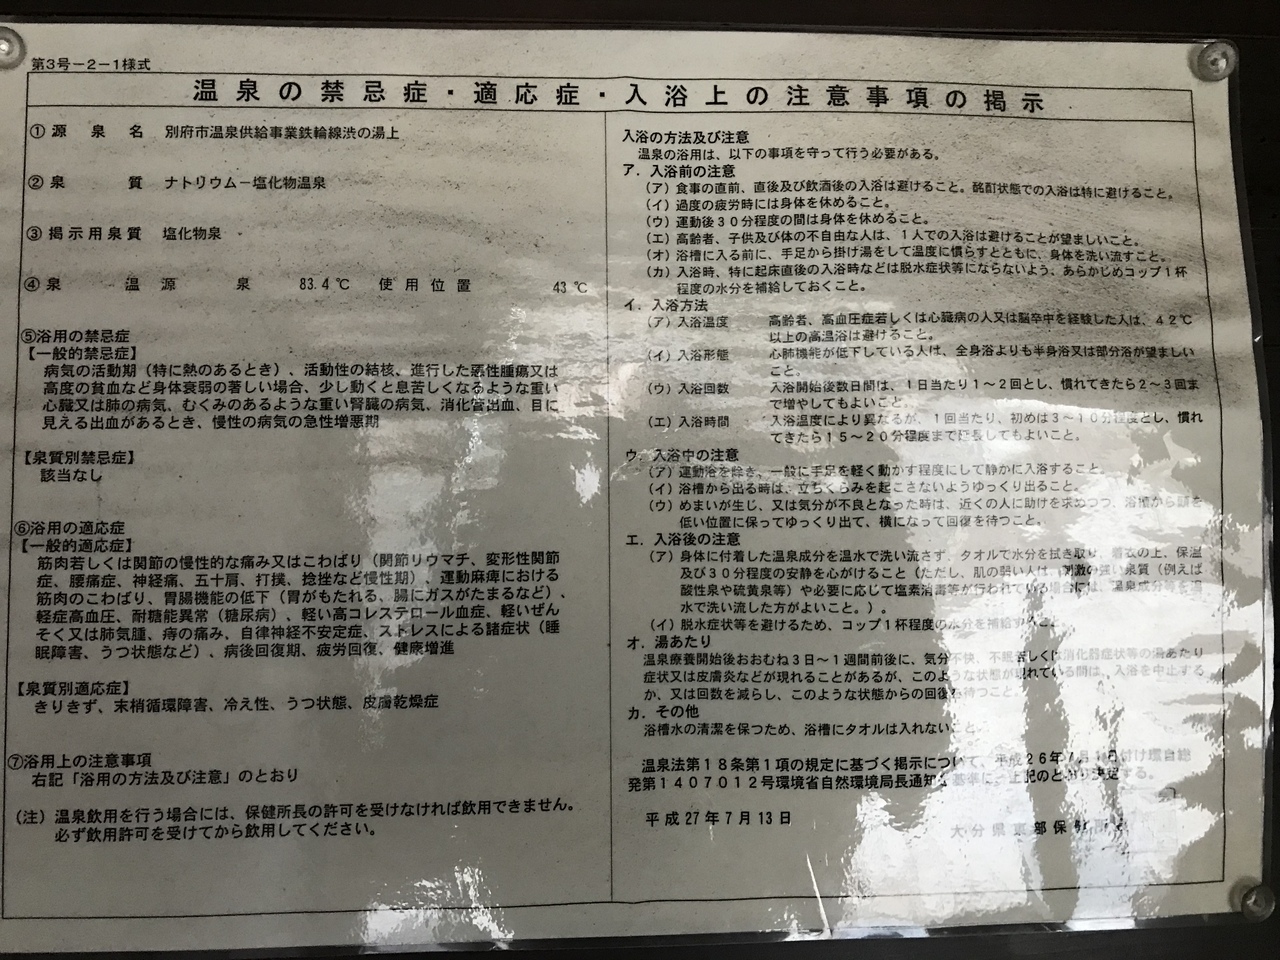 第3号－2－1様式
温泉の禁忌症・適応症・入浴上の注意事項の掲示
①源泉名 別府市温泉供給事業鉄輪線渋の湯上
②泉質 ナトリウム－塩化物温泉
③掲示用泉質 塩化物泉
④泉温 源泉 83.4℃ 使用位置 43℃
⑤浴用の禁忌症
【一般的禁忌症】
病気の活動期（特に熱のあるとき）、活動性の結核、進行した悪性腫瘍又は
高度の貧血など身体衰弱の著しい場合、少し動くと息苦しくなるような重い
心臓又は肺の病気、むくみのあるような重い腎臓の病気、消化管出血、目に
見える出血があるとき、慢性の病気の急性増悪期
【泉質別禁忌症】
該当なし
⑥浴用の適応症
【一般的適応症】
筋肉若しくは関節の慢性的な痛み又はこわばり（関節リウマチ、変形性関節
症、腰痛症、神経痛、五十肩、打撲、捻挫など慢性期）、運動麻痺における
筋肉のこわばり、胃腸機能の低下（胃がもたれる、腸にガスがたまるなど）、
軽症高血圧、耐糖能異常（糖尿病）、軽い高コレステロール血症、軽いぜん
そく又は肺気腫、痔の痛み、自律神経不安定症、ストレスによる諸症状（睡
眠障害、うつ状態など）、病後回復期、疲労回復、健康増進
【泉質別適応症】
きりきず、末梢循環障害、冷え性、うつ状態、皮膚乾燥症
⑦浴用上の注意事項
右記「浴用の方法及び注意」のとおり
（注）温泉飲用を行う場合には、保健所長の許可を受けなければ飲用できません。
必ず飲用許可を受けてから飲用してください。
入浴の方法及び注意
温泉の浴用は、以下の事項を守って行う必要がある。
ア．入浴前の注意
（ア）食事の直前、直後及び飲酒後の入浴は避けること。酩酊状態での入浴は特に避けること。
（イ）過度の疲労時には身体を休めること。
（ウ）運動後３０分程度の間は身体を休めること。
（エ）高齢者、子供及び体の不自由な人は、１人での入浴は避けることが望ましいこと。
（オ）浴槽に入る前に、手足から掛け湯をして温度に慣らすとともに、身体を洗い流すこと。
（カ）入浴時、特に起床直後の入浴時などは脱水症状等にならないよう、あらかじめコップ１杯
程度の水分を補給しておくこと。
イ．入浴方法
（ア）入浴温度 高齢者、高血圧症若しくは心臓病の人又は脳卒中を経験した人は、４２℃
以上の高温浴は避けること。
（イ）入浴形態 心肺機能が低下している人は、全身浴よりも半身浴又は部分浴が望ましい
こと。
（ウ）入浴回数 入浴開始後数日間は、１日当たり１～２回とし、慣れてきたら２～３回ま
で増やしてもよいこと。
（エ）入浴時間 入浴温度により異なるが、１回当たり、初めは３～１０分程度とし、慣れ
てきたら１５～２０分程度まで延長してもよいこと。
ウ．入浴中の注意
（ア）運動浴を除き、一般に手足を軽く動かす程度にして静かに入浴すること。
（イ）浴槽から出る時は、立ちくらみを起こさないようゆっくり出ること。
（ウ）めまいが生じ、又は気分が不良となった時は、近くの人に助けを求めつつ、浴槽から頭を
低い位置に保ってゆっくり出て、横になって回復を待つこと。
エ．入浴後の注意
（ア）身体に付着した温泉成分を温水で洗い流さず、タオルで水分を拭き取り、着衣の上、保温
及び３０分程度の安静を心がけること（ただし、肌の弱い人は、刺激の強い泉質（例えば
酸性泉や硫黄泉等）や必要に応じて塩素消毒等が行われている場合には、温泉成分等を温
水で洗い流した方がよいこと。）。
（イ）脱水症状等を避けるため、コップ１杯程度の水分を補給すること。
オ．湯あたり
温泉療養開始後おおむね３日～１週間前後に、気分不快、不眠若しくは消化器症状等の湯あたり
症状又は皮膚炎などが現れることがあるが、このような状態が現れている間は、入浴を中止する
か、又は回数を減らし、このような状態からの回復を待つこと。
カ．その他
浴槽水の清潔を保つため、浴槽にタオルは入れないこと。
温泉法第１８条第１項の規定に基づく掲示について、平成２６年７月１日付け環自総
発第１４０７０１２号環境省自然環境局長通知を基準に、上記のとおり決定する。
平成27年7月13日
大分県東部保健所